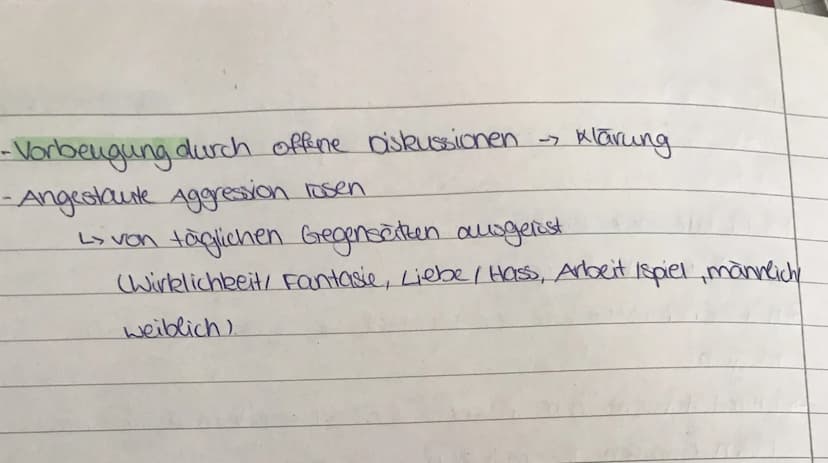 - Vorbeugung durch offene Diskussionen → Klärung
- Angestaute Aggression lösen
↳ von täglichen Gegensätzen ausgelöst
(Wirklichkeit/ Fantasie, Liebe/Hass, Arbeit/Spiel, männlich/
weiblich)